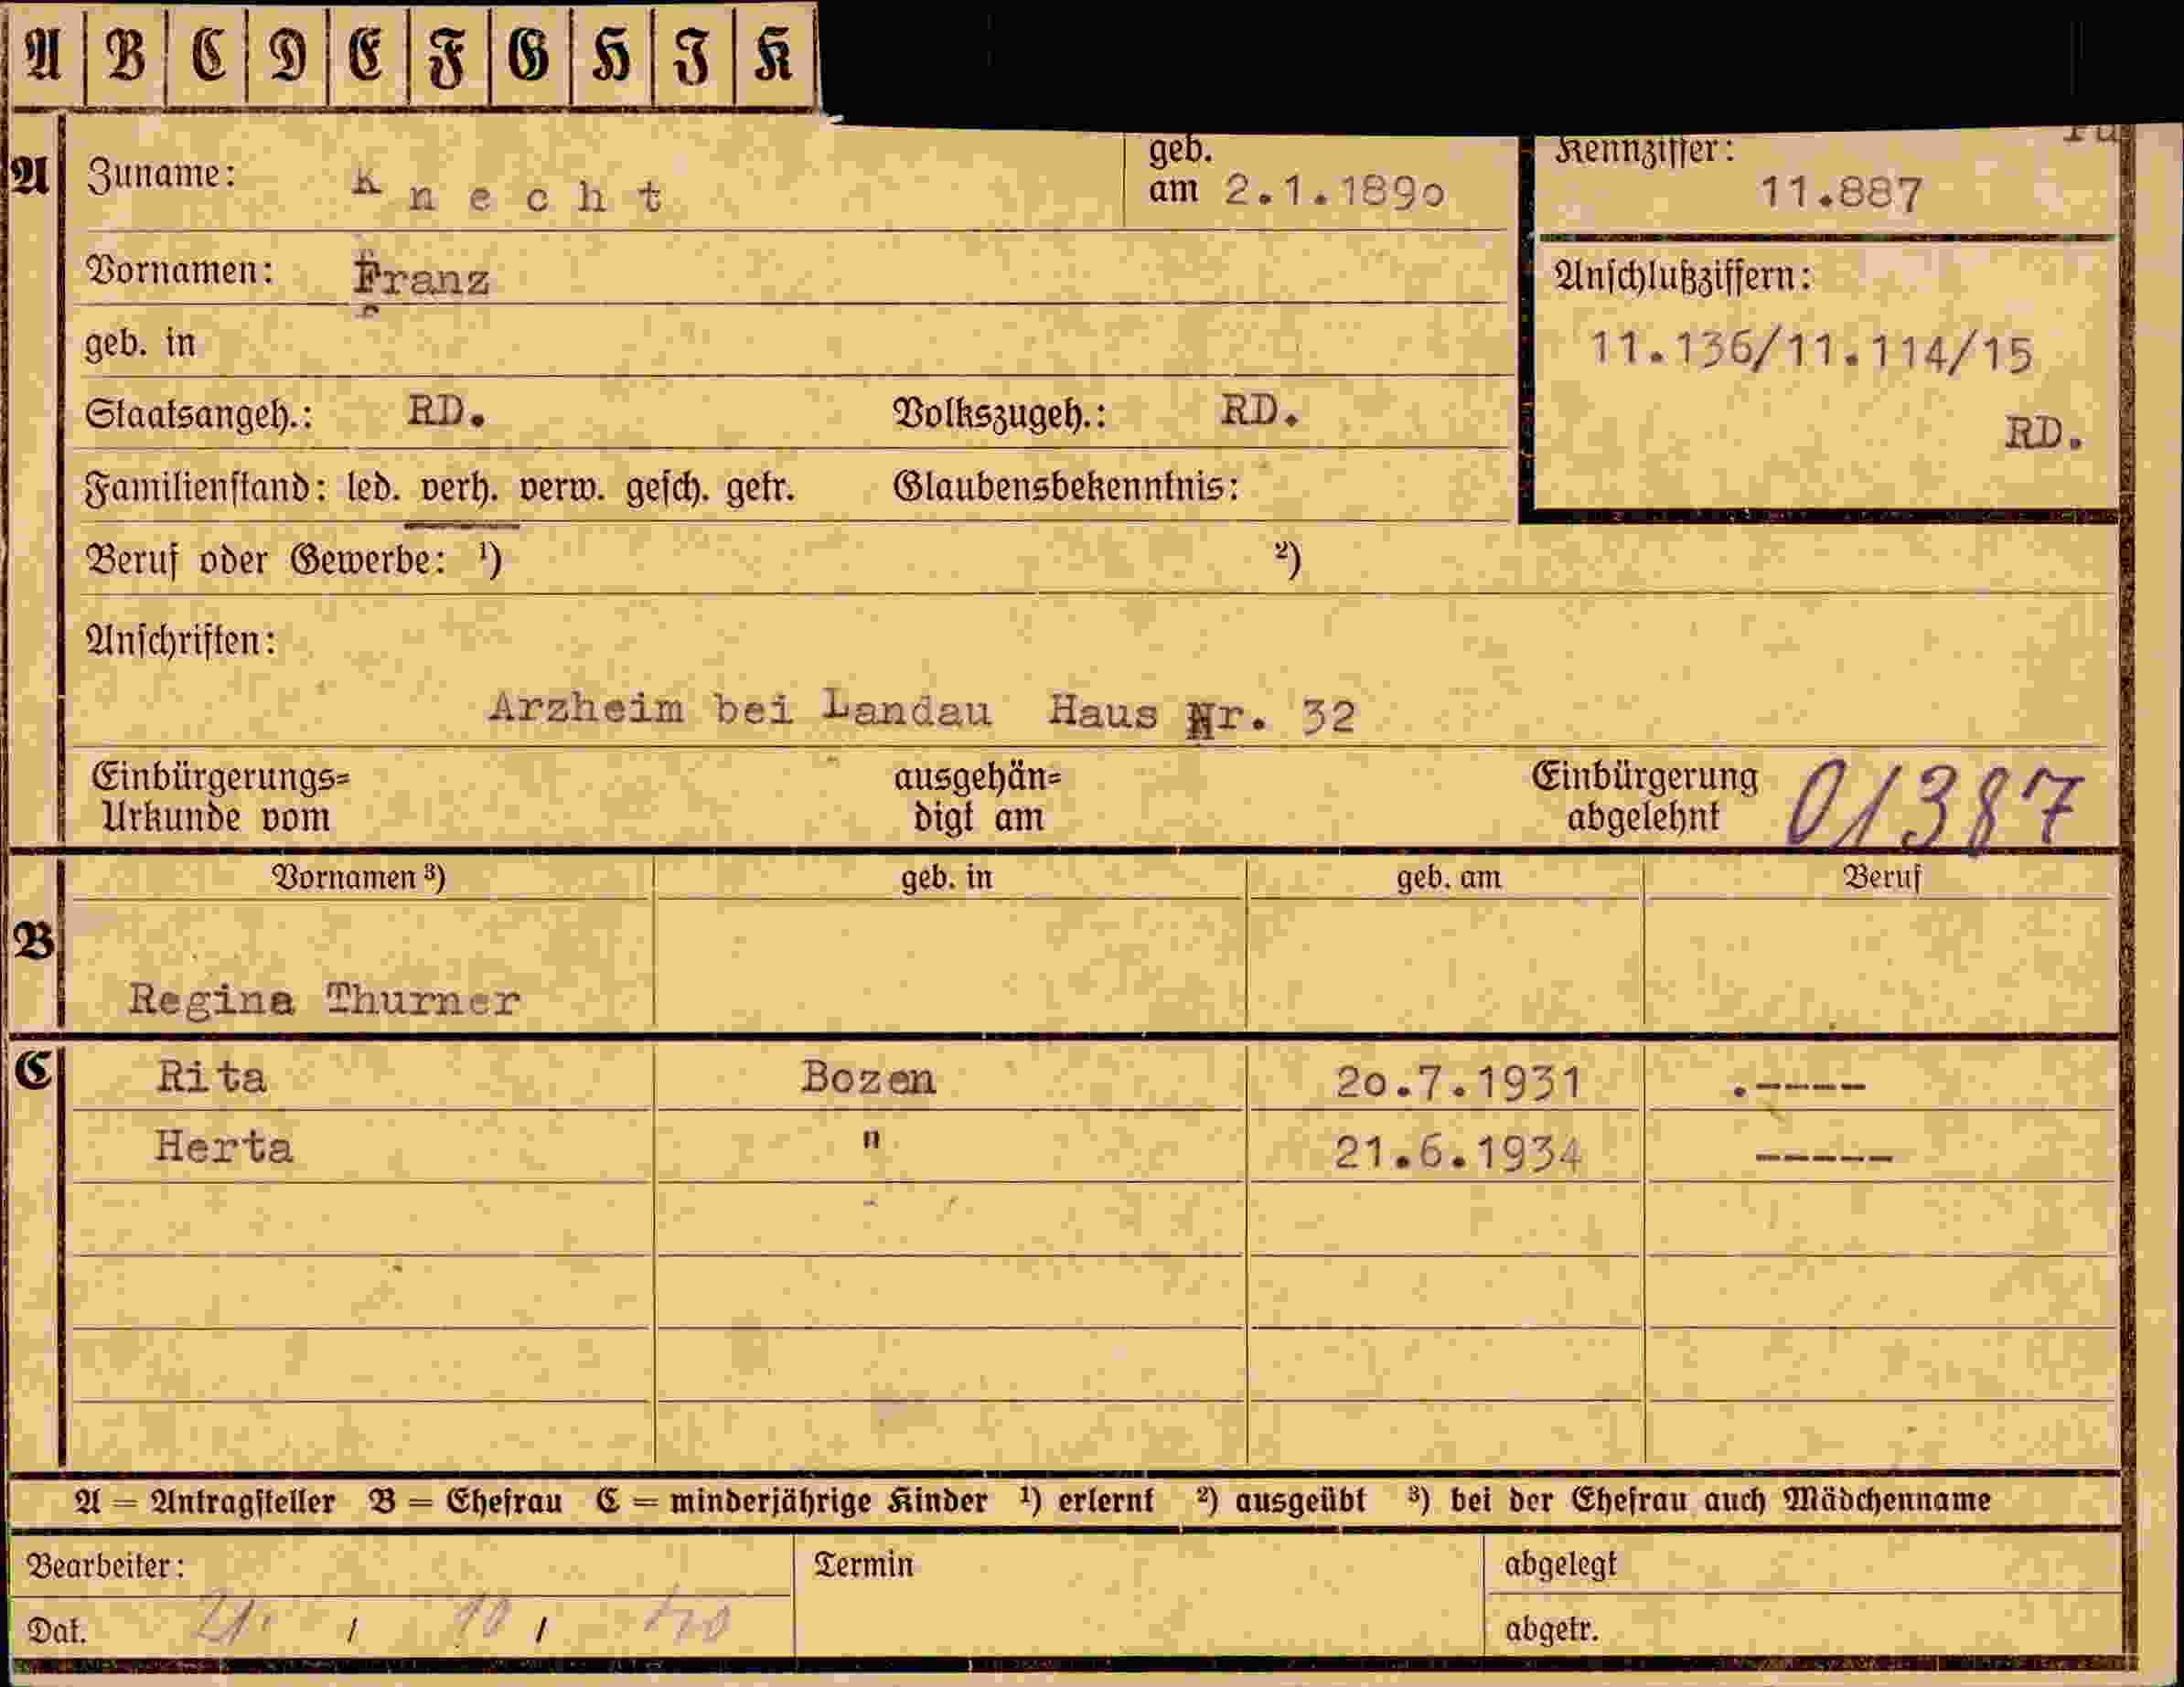 A B C D E F G H I K
A Zuname: K n e c h t geb. am 2.1.1890 Kennziffer: 11.887
Vornamen: Franz Anschlußziffern:
geb. in 11.136/11.114/15
Staatsangeh.: RD. Volkszugeh.: RD. RD.
Familienstand: led. verh. verw. gesch. getr. Glaubensbekenntnis:
Beruf oder Gewerbe: ¹) ²)
Anschriften:
Arzheim bei Landau Haus Nr. 32
Einbürgerungs= ausgehän= Einbürgerung 01387
Urkunde vom digt am abgelehnt
Vornamen ³) geb. in geb. am Beruf
B
Regina Thurner
C Rita Bozen 20.7.1931 .----
Herta " 21.6.1934 -----
A = Antragsteller B = Ehefrau C = minderjährige Kinder ¹) erlernt ²) ausgeübt ³) bei der Ehefrau auch Mädchenname
Bearbeiter: Termin abgelegt
Dat. 21. / 10 / 40 abgetr.